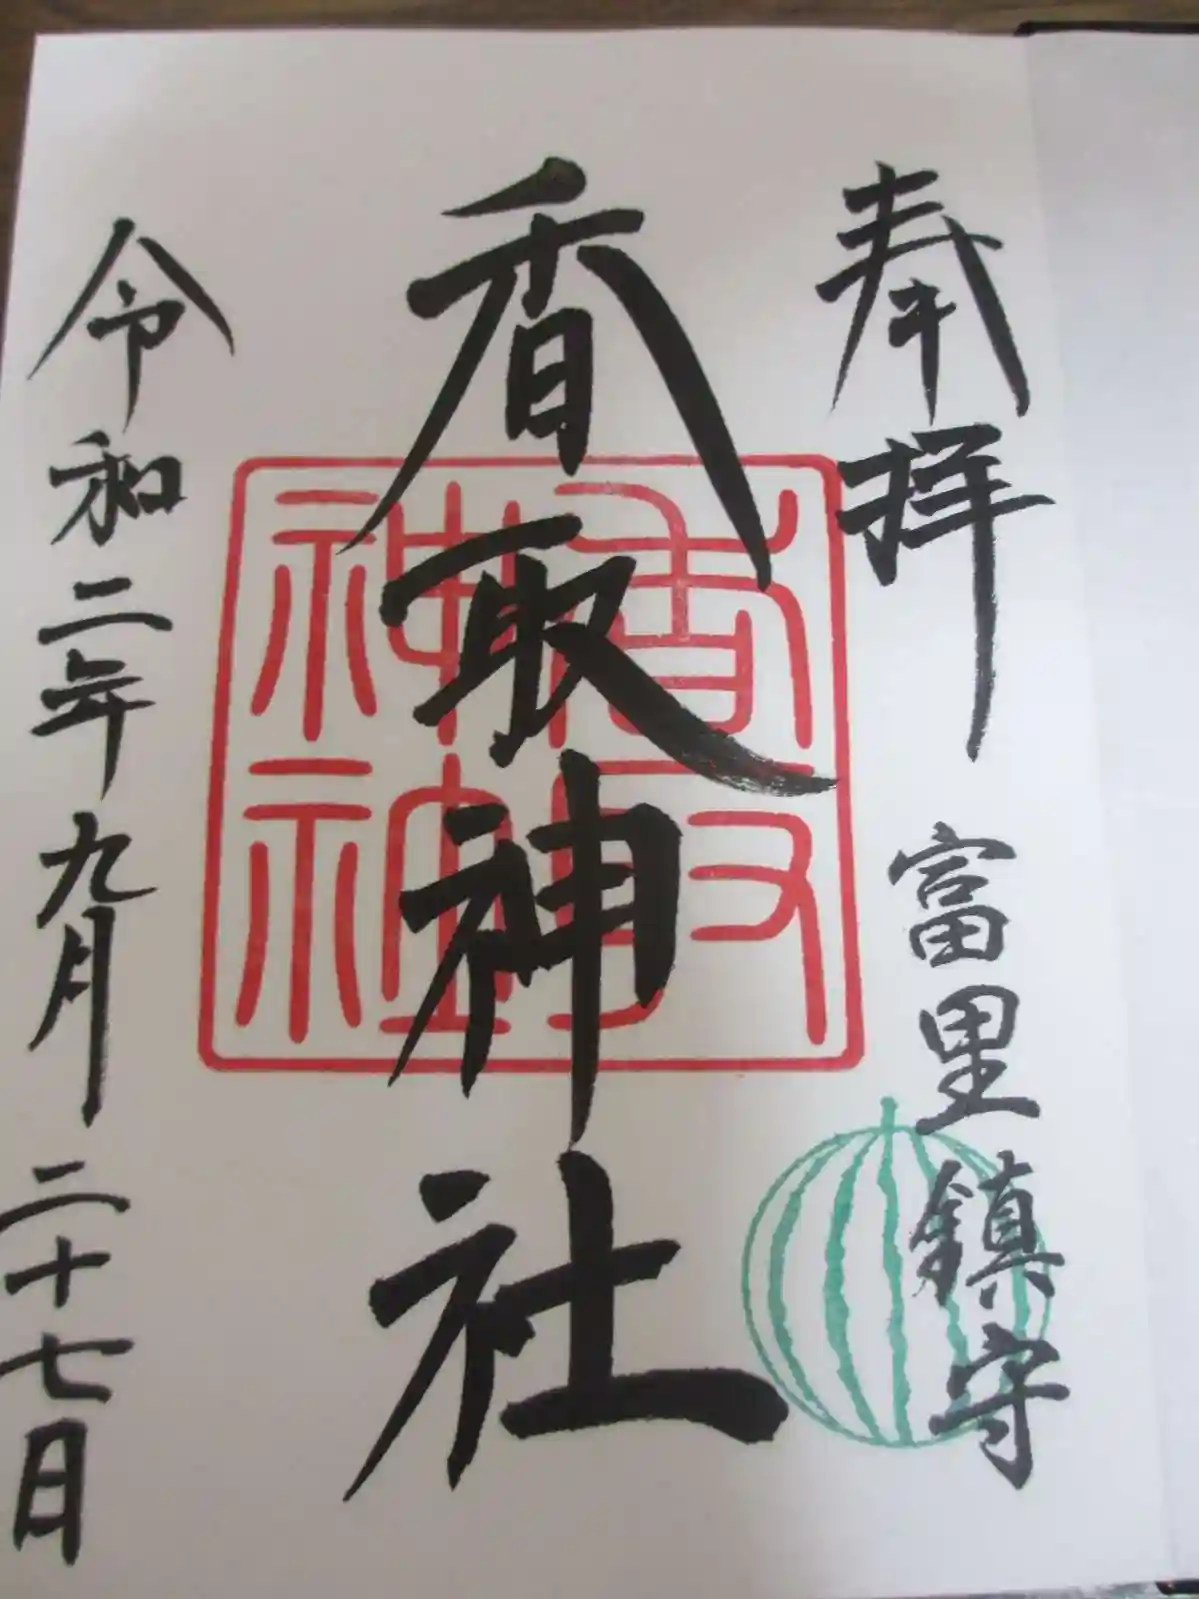 奉拝 富里鎮守
香取神社
香取神社
令和二年九月二十七日